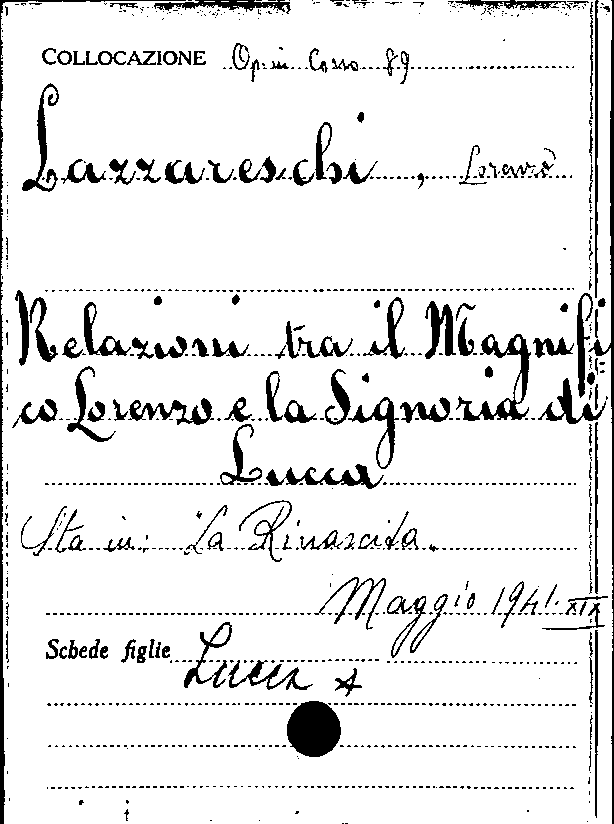 COLLOCAZIONE Op. in Casso 89
Lazzareschi, Lorenzo
Relazioni tra il Magnifi
co Lorenzo e la Signoria di
Lucca
Sta in: "La Rinascita"
Maggio 1941. XIX
Schede figlie Lucca